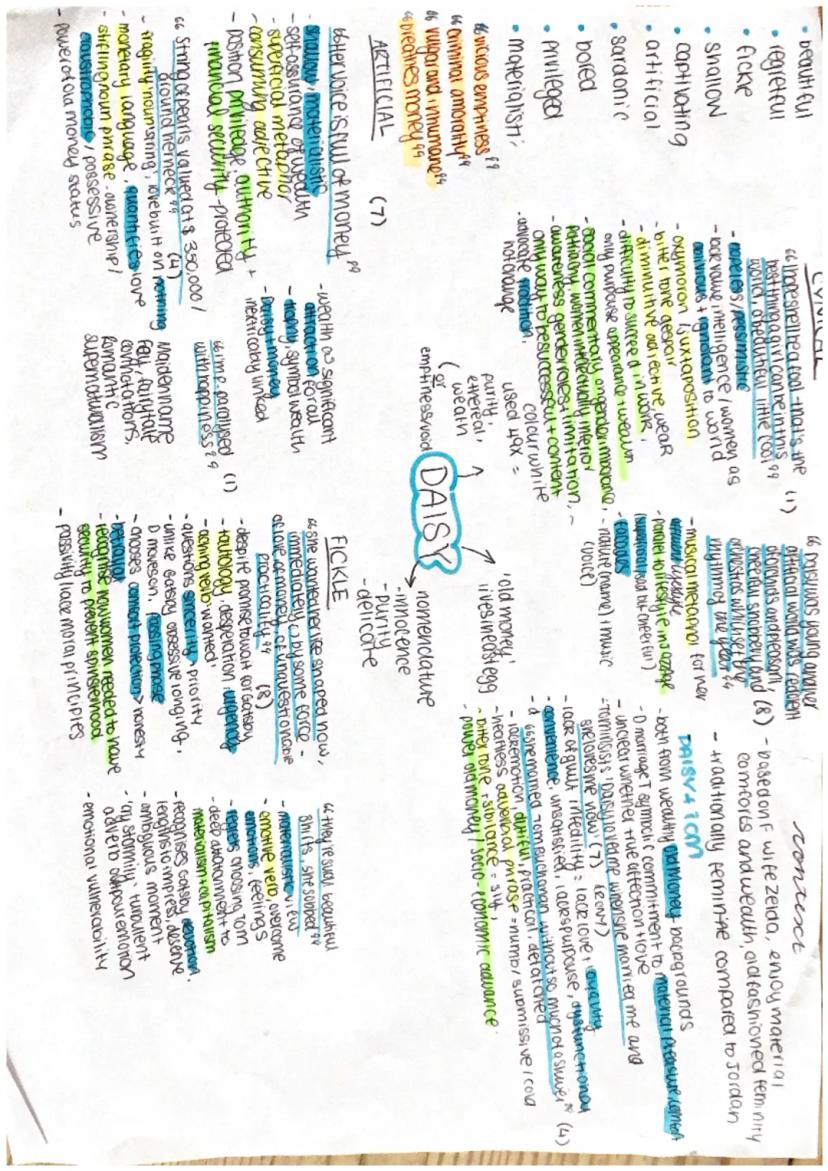 • beautiful
• regretful
• fickle
• shallow
• captivating
• artificial
• sardonic
• bored
• privileged
• materialisti
"vicious emptiness"
"criminal amorality"
"vulgar and inhumane"
"breathes money"
CYNICAL
"I hope she'll be a fool - that's the
best thing a girl can be in this
world, a beautiful little fool" (1)
- hopeless / pessimistic
- lack value intelligence / women as
ornaments + ignorant to world
- oxymoron / juxtaposition
- bitter tone despair
- diminutive adjective, wear
- difficulty to succeed in work,
only purpose appearance
- social commentary on gender
patriarchy women intellectually inferior
- awareness gender roles, limitation, -
only way to be successful + content
- advocate tradition,
not change
"Daisy was young and her
artificial world was redolent
of orchids and pleasant,
cheerful snobbery and (8)
orchestras which set the
rhythm of the year"
- musical metaphor for her
affluent lifestyle
- parallel to lifestyle in jazz age
- facade
(superficial put but cheerful)
- nature (name) + music
(voice)
context
- based on F wife Zelda, enjoy material
comforts and wealth old fashioned feminity
- traditionally feminine compared to Jordan
DAISY + TOM
- both from wealthy old money backgrounds
- D marriage T symbolic commitment to material pleasure/comfort
- unclear whether true affection + love
- Tom insists 'Daisy loved me when she married me and
she loves me now' (7)
- lack of guilt infedility = lack love, loyalty
- convenience, unsatisfied, lacks pulpouse, dysfunctional
- "she married Tom Buchanan without so much as a shiver" (4)
- lack emotion, dutiful, practical, detatched
- heartless adverbial phrase = numb / submissive / cold
- bitter tone - sibilance = sly,
- power old money / socio-economic advance
ARTIFICIAL
"Her voice is full of money" (7)
- shallow, materialistic
- self-assurance of wealth
- superficial metaphor
- consuming adjective
- position priviledge, authority +
financial security - protected
- wealth as significant
attraction for all
- trophy, symbol wealth
- Daisy + money
inextricably linked
"string of pearls valued at $350,000 /
around her neck" (4)
- fragility nourishing, love built on nothing
- monetary language, quantifies love
- stifling noun phrase - ownership /
claustrophobic / possessive
- power of old money status
"I'm p-paralysed (1)
with happiness"
Maiden name
Fay, fairytale
connotations,
romantic
supernaturalism
DAISY
purity,
ethereal,
(wealth
or
emptiness/void
colour white
used 49x =
'old money'
lives in East Egg
nomenclature
- innocence
- purity
- delicate
FICKLE
"she wanted her life shaped now,
immediately, by some force -
of love, of money, of unquestionable
practicality" (8)
- despite promise to wait for Gatsby
- tautology, desperation, urgency
- aching verb 'wanted'
- questions sincerity + priority
- unlike Gatsby obsessive longing,
D moves on, passing phase
- chooses comfort protection > honesty
- betrayal
- recognise how women needed to have
security to prevent spinsterhood
- passivity lace moral principles
"they're such beautiful
shirts, she sobbed"
- materialistic view
- emotive verb, overcome
emotions, feelings
- regrets choosing Tom
- deep attatchment to
materialism + capitalism
- recognises Gatsby devotion,
lengths to impress, deserve
- ambiguous moment
- 'cry stormily', turbulent
adverb outpour emotion
- emotional vulnerability